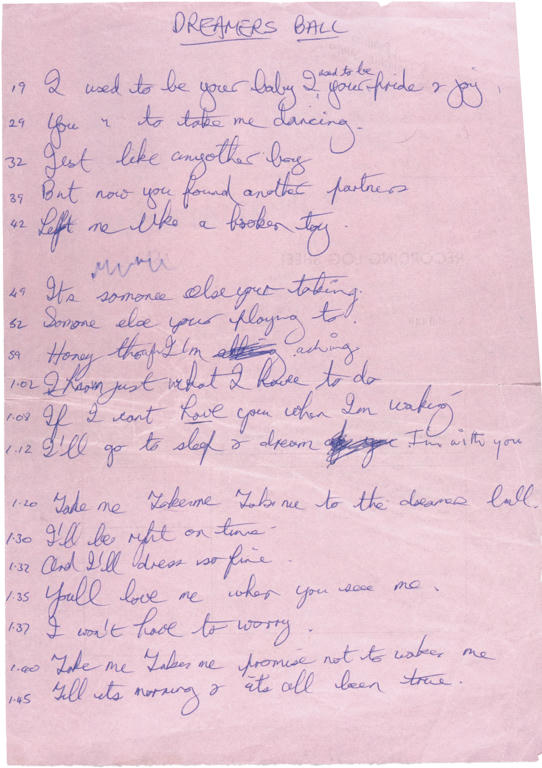 DREAMERS BALL
19 I used to be your baby I used to be your pride & joy
29 You " to take me dancing.
32 Jest like anyother boy
39 But now you found another partners
42 Left me like a broken toy.
49 Its somonee else your taking.
52 Somone else your playing to.
59 Honey thof I'm aching
1.02 I know just what I have to do
1.08 If I cant have you when Im waking
1.12 I'll go to sleep & dream Im with you
1.20 Take me Takeme Take me to the dreamers ball.
1.30 I'll be right on time
1.32 And I'll dress so fine.
1.35 You'll love me when you see me.
1.37 I won't have to worry.
1.40 Take me Take me promise not to wake me
1.45 Till its morning & its all been true.
RECORDING LOG SHEET